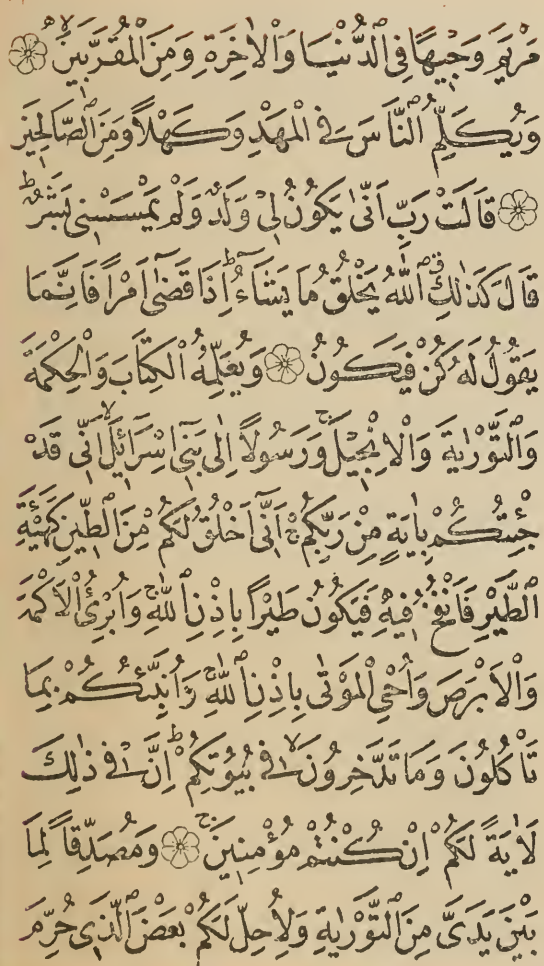 مَرْيَمَ وَجِيهًا فِى ٱلدُّنْيَا وَٱلْاٰخِرَةِ وَمِنَ ٱلْمُقَرَّبِينَ
وَيُكَلِّمُ ٱلنَّاسَ فِى ٱلْمَهْدِ وَكَهْلًا وَمِنَ ٱلصَّالِحِينَ
قَالَتْ رَبِّ اَنّٰى يَكُونُ لِى وَلَدٌ وَلَمْ يَمْسَسْنِى بَشَرٌ ط
قَالَ كَذٰلِكِ ٱللّٰهُ يَخْلُقُ مَا يَشَآءُ ط اِذَا قَضٰٓى اَمْرًا فَاِنَّمَا
يَقُولُ لَهُ كُنْ فَيَكُونُ وَيُعَلِّمُهُ ٱلْكِتَابَ وَٱلْحِكْمَةَ
وَٱلتَّوْرٰيةَ وَٱلْاِنْجِيلَ ج وَرَسُولًا اِلٰى بَنِٓى اِسْرَآئِلَ اَنِّى قَدْ
جِئْتُكُمْ بِاٰيَةٍ مِنْ رَبِّكُمْ ج اَنِّٓى اَخْلُقُ لَكُمْ مِنَ ٱلطِّينِ كَهَيْئَةِ
ٱلطَّيْرِ فَاَنْفُخُ فِيهِ فَيَكُونُ طَيْرًا بِاِذْنِ ٱللّٰهِ ج وَاُبْرِئُ ٱلْاَكْمَهَ
وَٱلْاَبْرَصَ وَاُحْىِ ٱلْمَوْتٰى بِاِذْنِ ٱللّٰهِ ج وَاُنَبِّئُكُمْ بِمَا
تَاْكُلُونَ وَمَا تَدَّخِرُونَ لا فِى بُيُوتِكُمْ ط اِنَّ فِى ذٰلِكَ
لَاٰيَةً لَكُمْ اِنْ كُنْتُمْ مُؤْمِنِينَ ج وَمُصَدِّقًا لِمَا
بَيْنَ يَدَىَّ مِنَ ٱلتَّوْرٰيةِ وَلِاُحِلَّ لَكُمْ بَعْضَ ٱلَّذِى حُرِّمَ